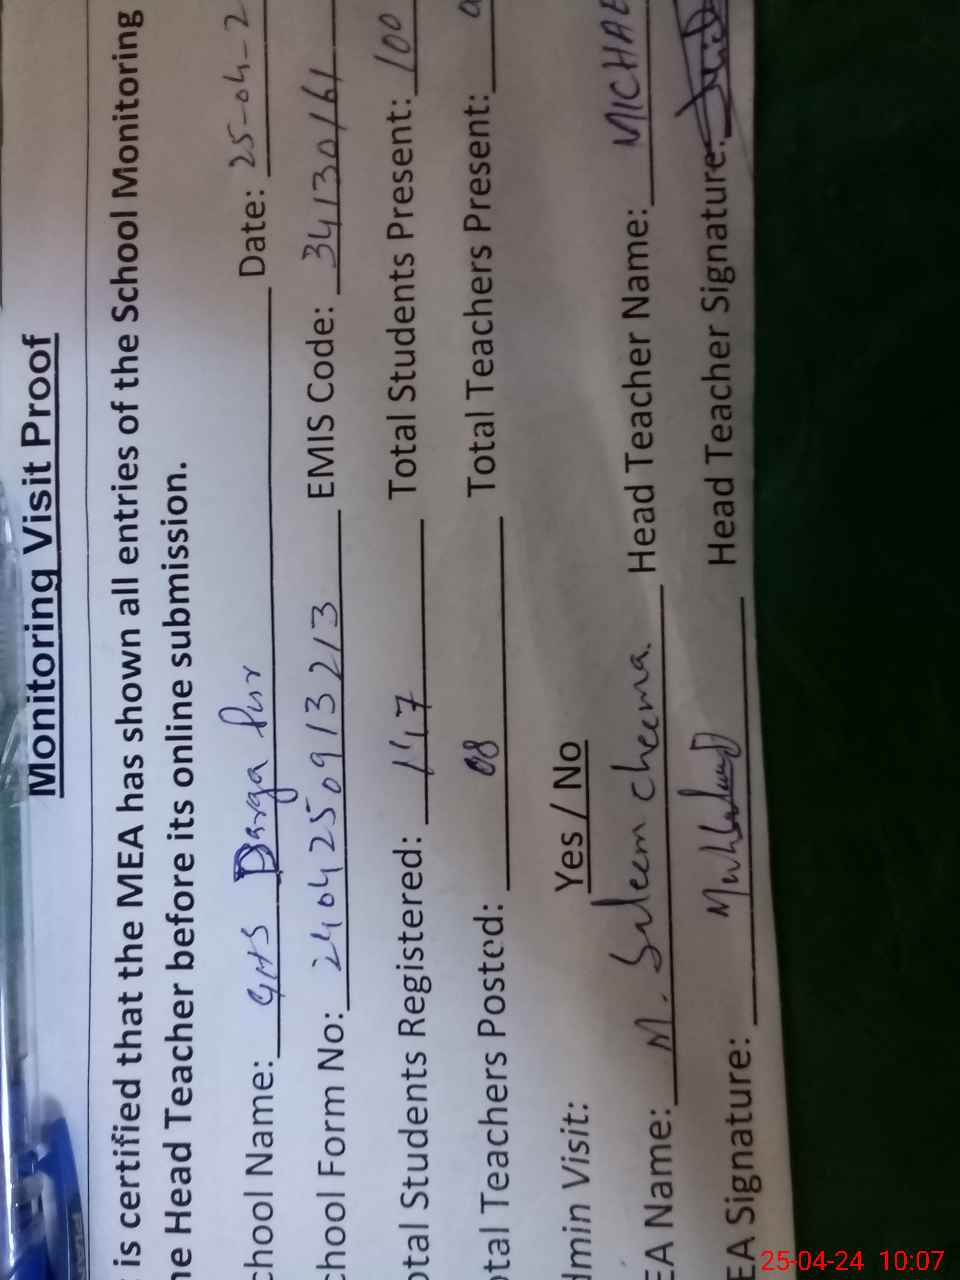 Monitoring Visit Proof
is certified that the MEA has shown all entries of the School Monitoring
he Head Teacher before its online submission.
chool Name: GHS Darga Pur Date: 25-04-2
chool Form No: 2404250913213 EMIS Code: 34130161
otal Students Registered: 147 Total Students Present: 100
otal Teachers Posted: 08 Total Teachers Present:
dmin Visit: Yes / No
EA Name: M. Saleem Cheema. Head Teacher Name: MICHAE
EA Signature: Head Teacher Signature:
25-04-24 10:07